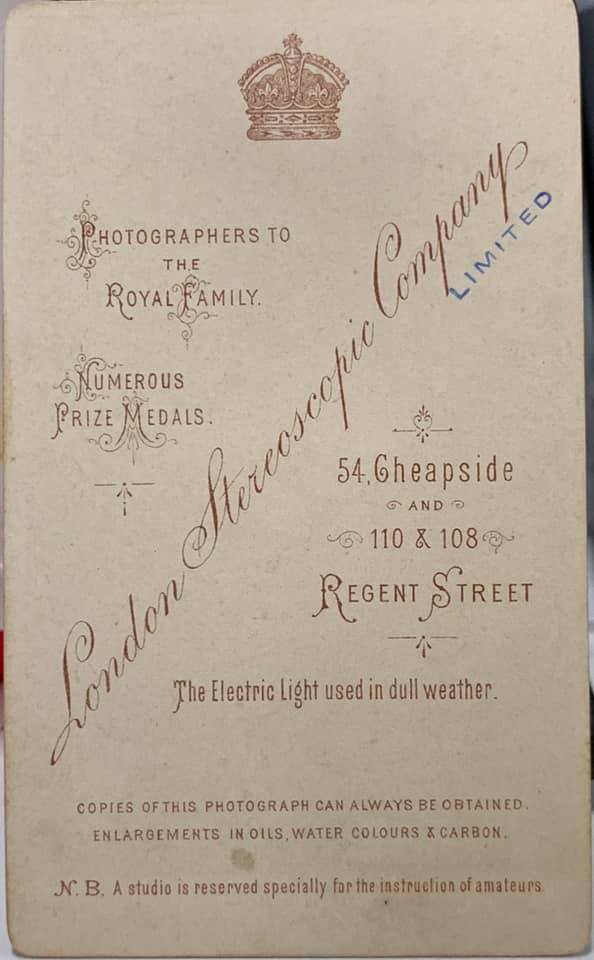 PHOTOGRAPHERS TO
THE
ROYAL FAMILY.
NUMEROUS
PRIZE MEDALS.
London Stereoscopic Company
LIMITED
54, Cheapside
AND
110 & 108
REGENT STREET
The Electric Light used in dull weather.
COPIES OF THIS PHOTOGRAPH CAN ALWAYS BE OBTAINED.
ENLARGEMENTS IN OILS, WATER COLOURS & CARBON.
N.B. A studio is reserved specially for the instruction of amateurs.